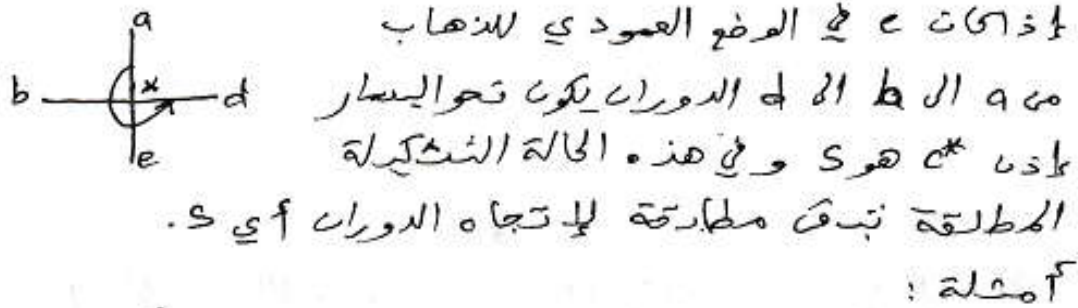 a
إذا كانت e في الوضع العمودي للذهاب
b * d من a الى b الى d الدوران يكون نحو اليسار
e إذن c* هو S وفي هذه الحالة التشكيلة
المطلقة تبقى مطابقة لإتجاه الدوران أي S.
أمثلة :